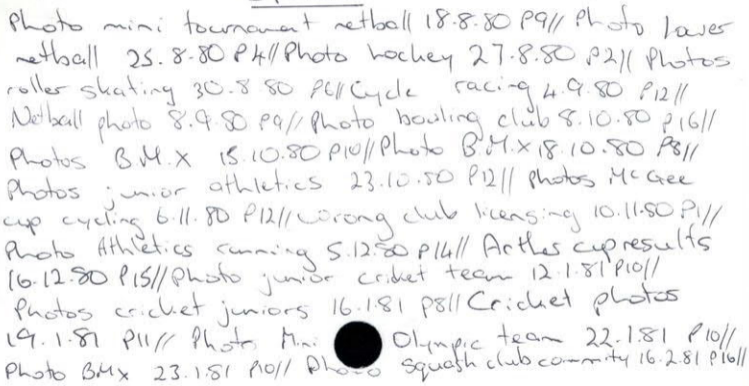 Photo mini tournament netball 18.8.80 P9// Photo Laver
netball 25.8.80 P4// Photo hockey 27.8.80 P2// Photos
roller skating 30.8.80 P6// Cycle racing 4.9.80 P12//
Netball photo 8.9.80 P9// Photo bowling club 8.10.80 P16//
Photos B.M.X 15.10.80 P10// Photo B.M.X 18.10.80 P8//
Photos junior athletics 23.10.80 P12// Photos McGee
cup cycling 6.11.80 P12// Corong club licensing 10.11.80 P1//
Photo Athletics running 5.12.80 P14// Arthes cup results
16.12.80 P15// Photo junior cricket team 12.1.81 P10//
Photos cricket juniors 16.1.81 P8// Cricket photos
19.1.81 P11// Photo Mini Olympic team 22.1.81 P10//
Photo BMX 23.1.81 P10// Photo Squash club commity 16.2.81 P16//